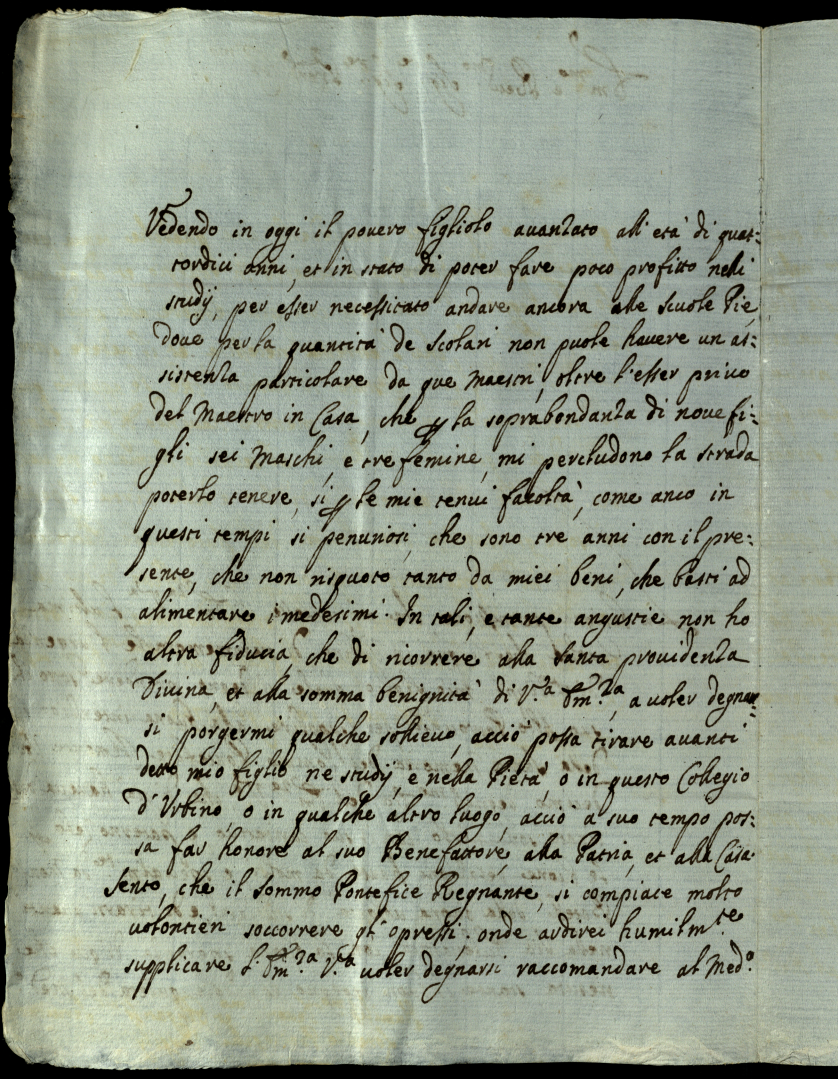 Vedendo in oggi il povero figliolo avanzato all'età di quat:
tordici anni, et in stato di poter fare poco profitto nelli
studij, per esser necessitato andare ancora alle Scuole Pie,
dove per la quantità de Scolari non puole havere un as:
sistenza particolare da que Maestri, oltre l'esser privo
del Maestro in Casa, che p la soprabondanza di nove fi:
gli sei Maschi, e tre femine, mi percludono la strada
poterlo tenere, si p le mie tenui facoltà, come anco in
questi tempi si penuriosi, che sono tre anni con il pre:
sente, che non risquoto tanto da miei beni, che basti ad
alimentare i medesimi. In tali, e tante angustie non ho
altra fiducia, che di ricorrere alla Santa providenza
Divina, et alla somma benignità di V.ª Em.ª, a voler degnar:
si porgermi qualche sollievo, acciò possa tirare avanti
detto mio figlio ne studij, e nella Pietà, o in questo Collegio
d'Urbino, o in qualche altro luogo, acciò a suo tempo pos:
sa far honore al suo Benefattore, alla Patria, et alla Casa.
Sento, che il Sommo Pontefice Regnante, si compiace molto
volontieri soccorrere gl'opressi, onde ardirei humilm.te
supplicare l'Em.ª V.ª voler degnarsi raccomandare al Med.º